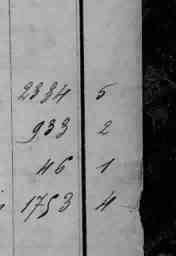 2334 5
933 2
46 1
1753 4